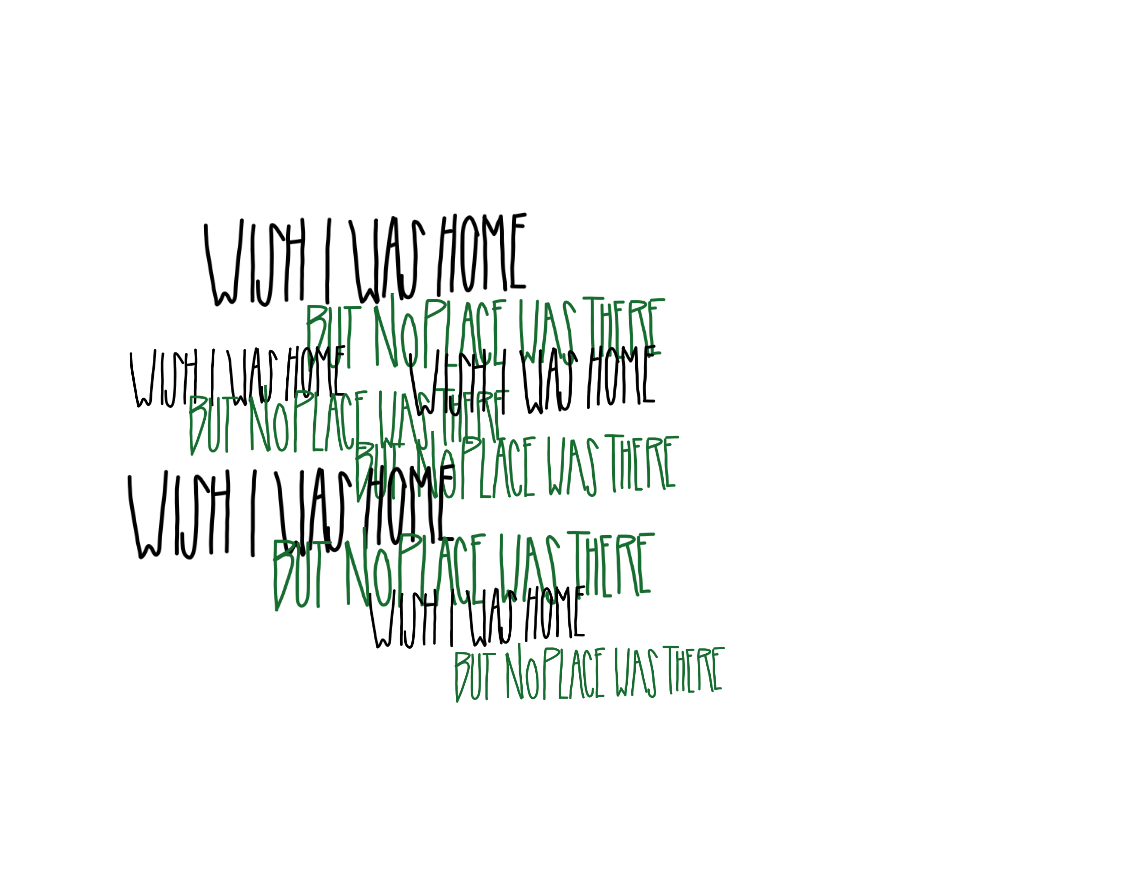 WISH I WAS HOME
BUT NO PLACE WAS THERE
WISH I WAS HOME
WISH I WAS HOME
BUT NO PLACE WAS THERE
BUT NO PLACE WAS THERE
WISH I WAS HOME
BUT NO PLACE WAS THERE
WISH I WAS HOME
BUT NO PLACE WAS THERE